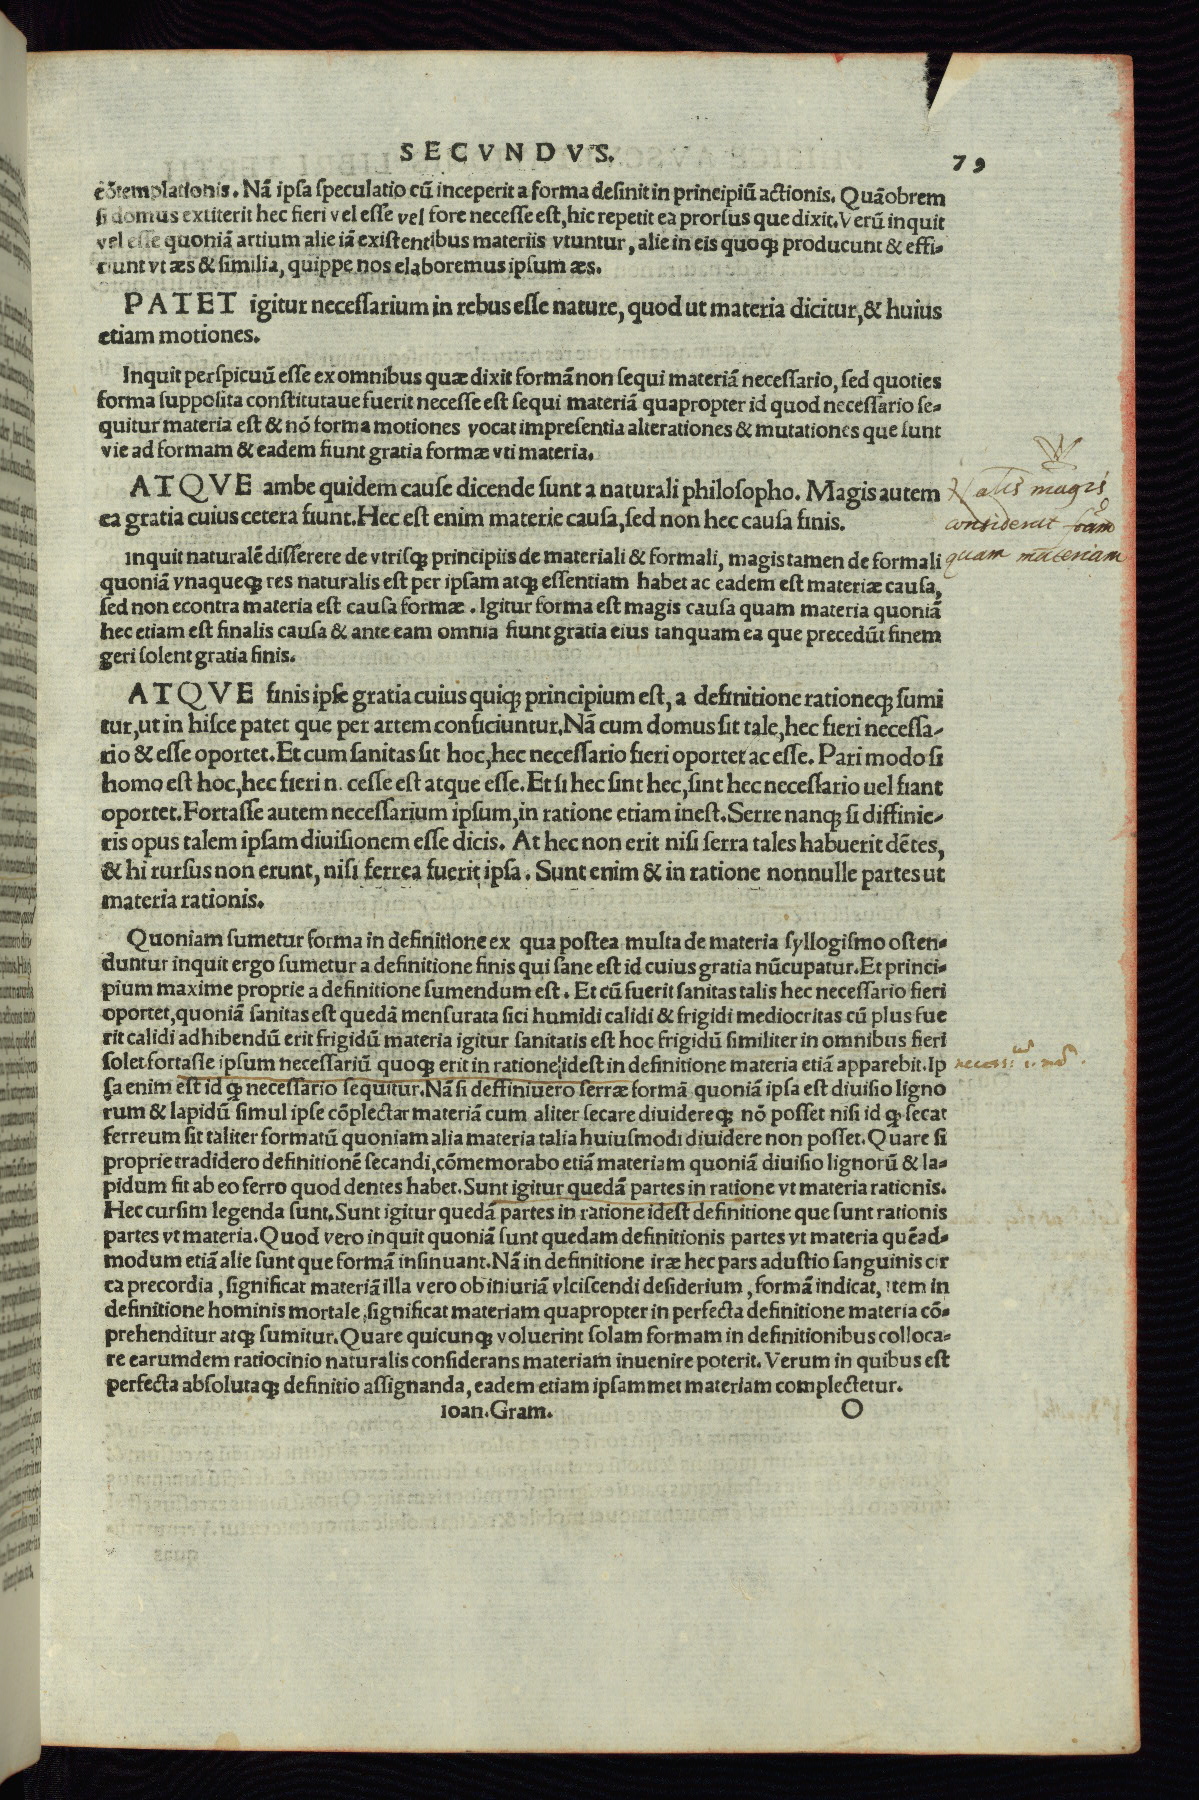 SECVNDVS. 79
cōtemplationis. Nā ipsa speculatio cū inceperit a forma desinit in principiū actionis. Quāobrem
si domus extiterit hec fieri vel esse vel fore necesse est, hic repetit ea prorsus que dixit. Verū inquit
vel esse quoniā artium alie iā existentibus materiis vtuntur, alie in eis quoqꝫ producunt & effi-
ciunt vt æs & similia, quippe nos elaboremus ipsum æs.
PATET igitur necessarium in rebus esse nature, quod ut materia dicitur, & huius
etiam motiones.
Inquit perspicuū esse ex omnibus quæ dixit formā non sequi materiā necessario, sed quoties
forma supposita constitutaue fuerit necesse est sequi materiā quapropter id quod necessario se-
quitur materia est & nō forma motiones vocat impresentia alterationes & mutationes que sunt
vie ad formam & eadem fiunt gratia formæ vti materia.
ATQVE ambe quidem cause dicende sunt a naturali philosopho. Magis autem
ea gratia cuius cetera fiunt. Hec est enim materie causa, sed non hec causa finis.
magis
considerat
quam materiam
Inquit naturalē disserere de vtrisqꝫ principiis de materiali & formali, magis tamen de formali
quoniā vnaqueqꝫ res naturalis est per ipsam atqꝫ essentiam habet ac eadem est materiæ causa,
sed non econtra materia est causa formæ. Igitur forma est magis causa quam materia quoniā
hec etiam est finalis causa & ante eam omnia fiunt gratia eius tanquam ea que precedūt finem
geri solent gratia finis.
ATQVE finis ipse gratia cuius quiqꝫ principium est, a definitione rationeqꝫ sumi
tur, ut in hisce patet que per artem conficiuntur. Nā cum domus sit tale, hec fieri necessa-
rio & esse oportet. Et cum sanitas sit hoc, hec necessario fieri oportet ac esse. Pari modo si
homo est hoc, hec fieri n cesse est atque esse. Et si hec sint hec, sint hec necessario uel fiant
oportet. Fortasse autem necessarium ipsum, in ratione etiam inest. Serre nanqꝫ si diffinie-
ris opus talem ipsam diuisionem esse dicis. At hec non erit nisi serra tales habuerit dētes,
& hi rursus non erunt, nisi ferrea fuerit ipsa. Sunt enim & in ratione nonnulle partes ut
materia rationis.
Quoniam sumetur forma in definitione ex qua postea multa de materia syllogismo osten-
duntur inquit ergo sumetur a definitione finis qui sane est id cuius gratia nūcupatur. Et princi-
pium maxime proprie a definitione sumendum est. Et cū fuerit sanitas talis hec necessario fieri
oportet, quoniā sanitas est quedā mensurata sici humidi calidi & frigidi mediocritas cū plus fue
rit calidi adhibendū erit frigidū materia igitur sanitatis est hoc frigidū similiter in omnibus fieri
solet fortasse ipsum necessariū quoqꝫ erit in ratione idest in definitione materia etiā apparebit. Ip
sa enim est id qꝫ necessario sequitur. Nā si deffiniuero serræ formā quoniā ipsa est diuisio ligno
rum & lapidū simul ipse cōplectar materiā cum aliter secare diuidereqꝫ nō posset nisi id qꝫ secat
ferreum sit taliter formatū quoniam alia materia talia huiusmodi diuidere non posset. Quare si
proprie tradidero definitionē secandi, cōmemorabo etiā materiam quoniā diuisio lignorū & la-
pidum fit ab eo ferro quod dentes habet. Sunt igitur quedā partes in ratione vt materia rationis.
Hec cursim legenda sunt. Sunt igitur quedā partes in ratione idest definitione que sunt rationis
partes vt materia. Quod vero inquit quoniā sunt quedam definitionis partes vt materia quēad-
modum etiā alie sunt que formā insinuant. Nā in definitione iræ hec pars adustio sanguinis cir
ca precordia, significat materiā illa vero ob iniuriā vlciscendi desiderium, formā indicat, item in
definitione hominis mortale, significat materiam quapropter in perfecta definitione materia cō-
prehenditur atqꝫ sumitur. Quare quicunqꝫ voluerint solam formam in definitionibus colloca-
re earumdem ratiocinio naturalis considerans materiam inuenire poterit. Verum in quibus est
perfecta absolutaqꝫ definitio assignanda, eadem etiam ipsammet materiam complectetur.
Ioan. Gram. O